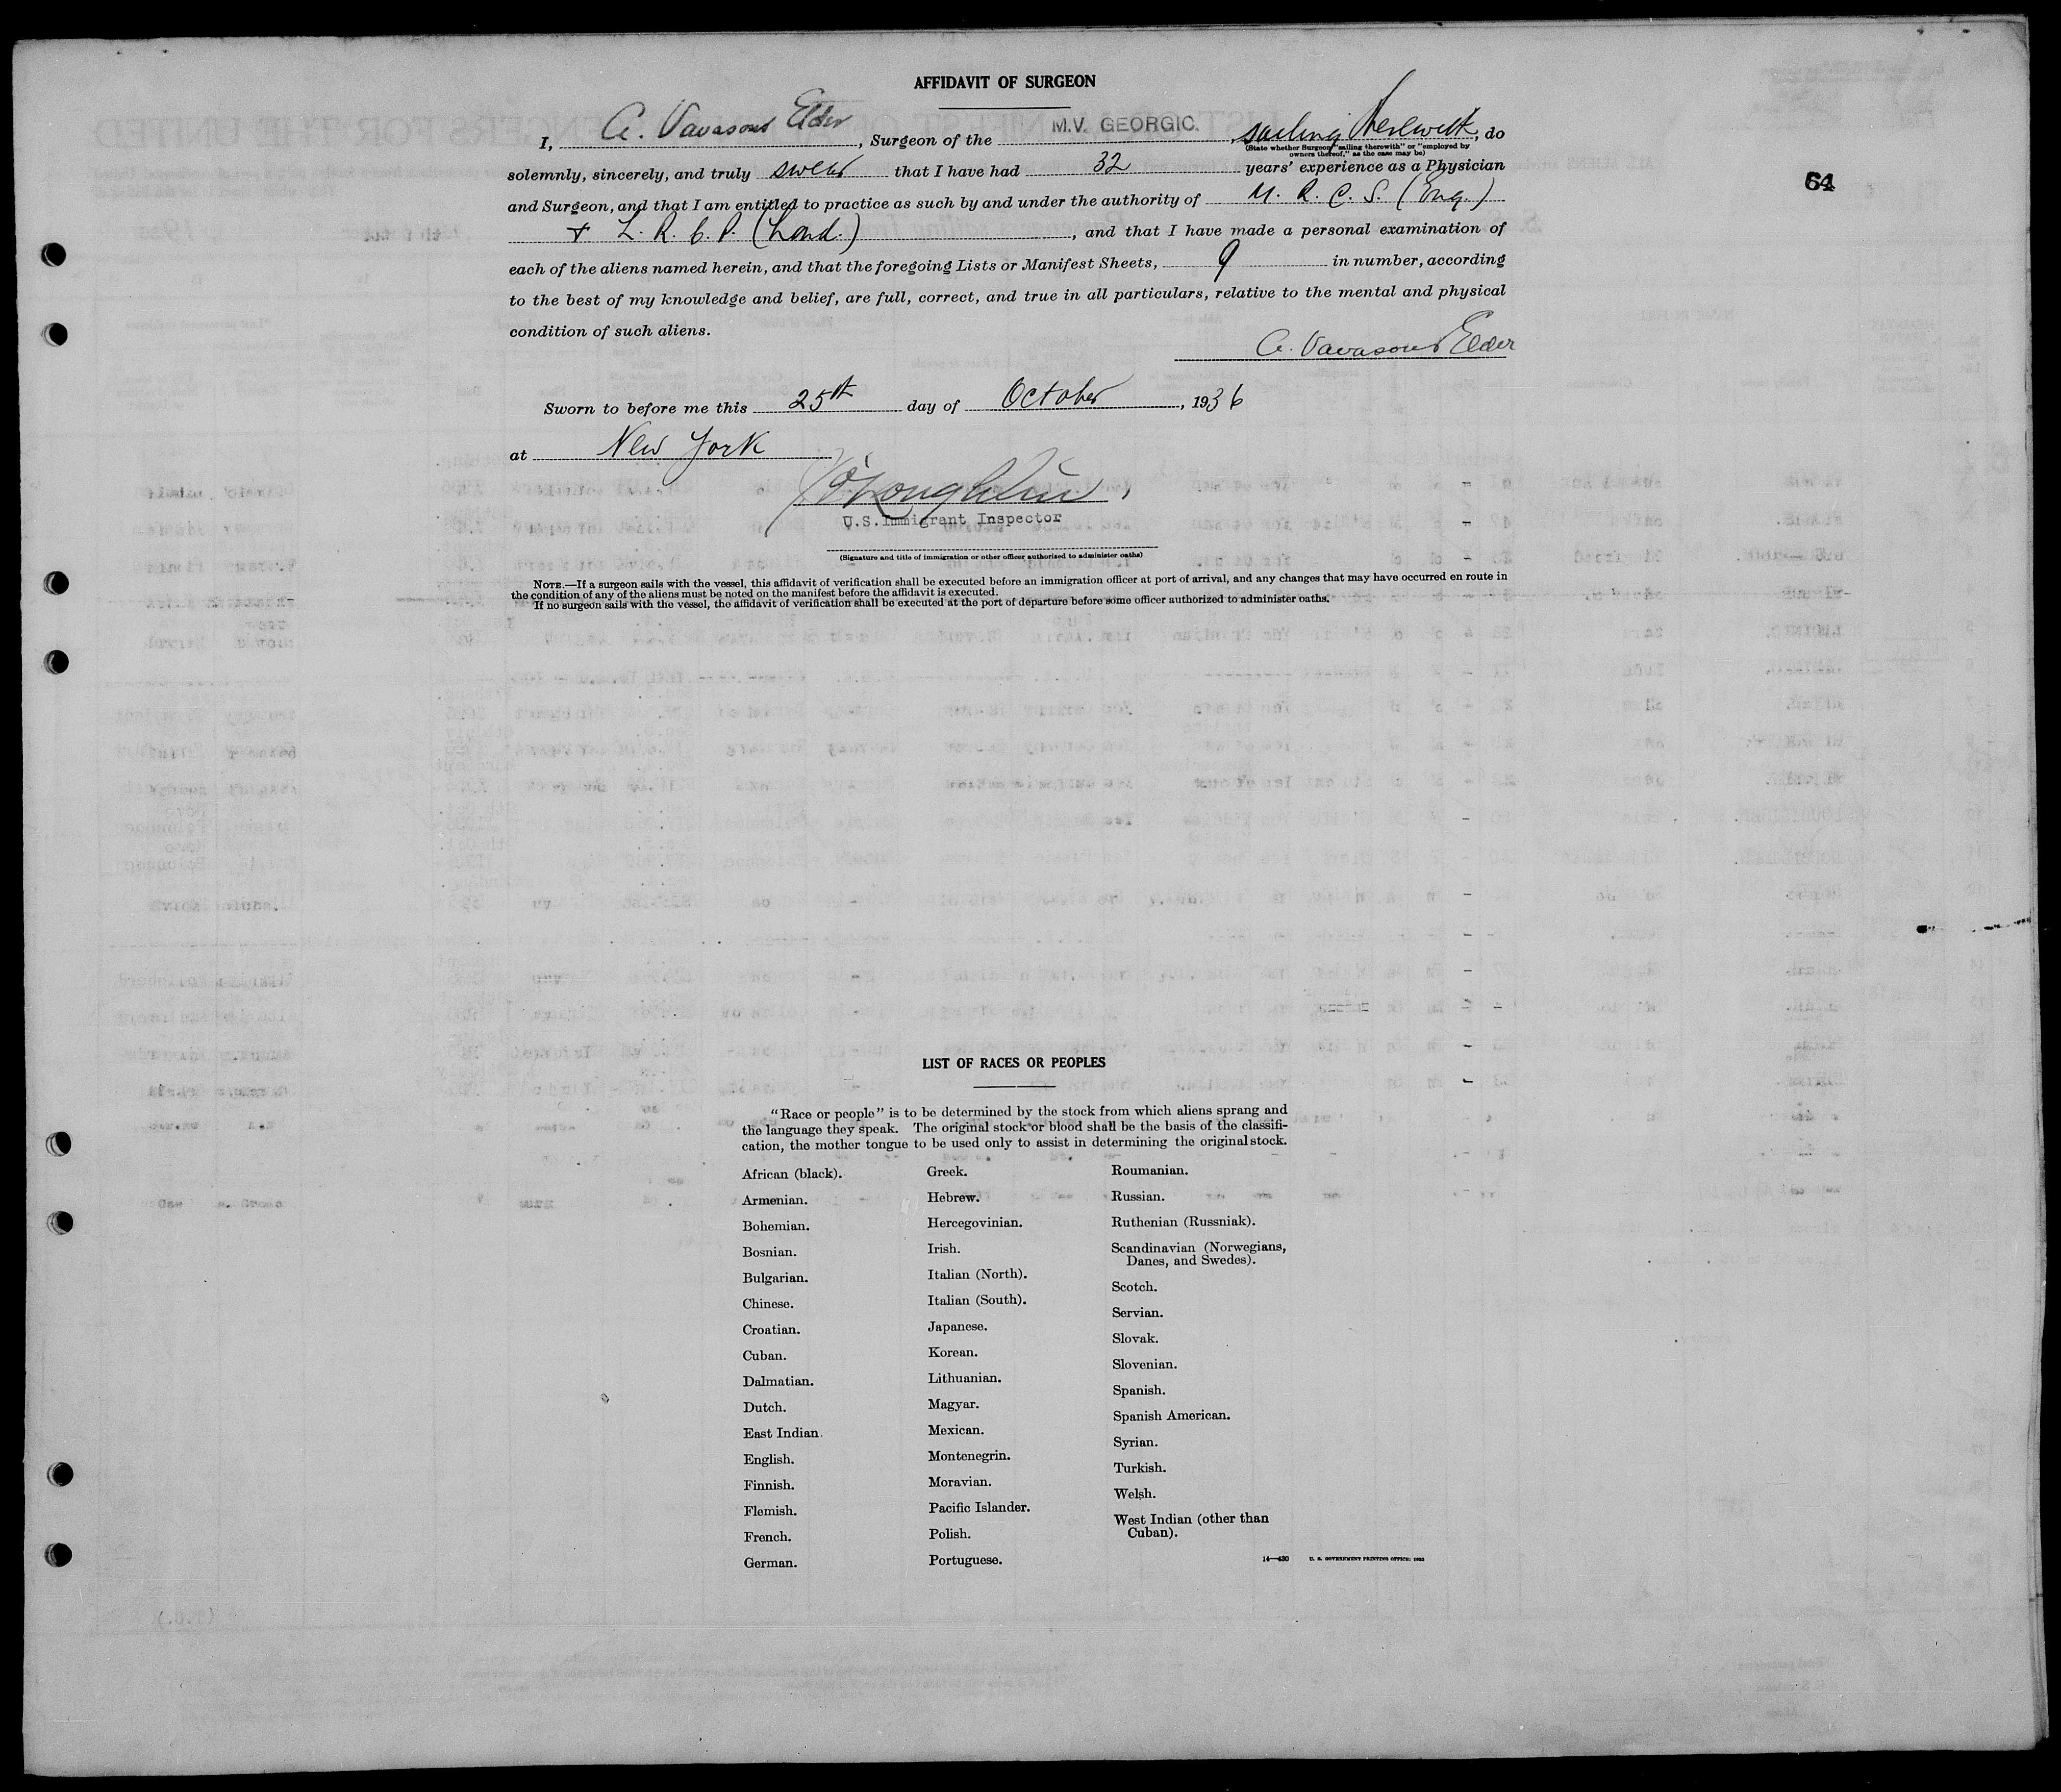 AFFIDAVIT OF SURGEON
I, A. Vavasour Elder, Surgeon of the M.V. GEORGIC, sailing therewith, do
(State whether Surgeon "sailing therewith" or "employed by
owners thereof," as the case may be)
solemnly, sincerely, and truly swear that I have had 32 years' experience as a Physician
64
and Surgeon, and that I am entitled to practice as such by and under the authority of M. R. C. S. (Eng.)
+ L. R. C. P. (Lond.), and that I have made a personal examination of
each of the aliens named herein, and that the foregoing Lists or Manifest Sheets, 9 in number, according
to the best of my knowledge and belief, are full, correct, and true in all particulars, relative to the mental and physical
condition of such aliens.
A. Vavasour Elder
Sworn to before me this 25th day of October, 1936
at New York
U.S. Immigrant Inspector
(Signature and title of immigration or other officer authorized to administer oaths)
NOTE.—If a surgeon sails with the vessel, this affidavit of verification shall be executed before an immigration officer at port of arrival, and any changes that may have occurred en route in
the condition of any of the aliens must be noted on the manifest before the affidavit is executed.
If no surgeon sails with the vessel, the affidavit of verification shall be executed at the port of departure before some officer authorized to administer oaths.
LIST OF RACES OR PEOPLES
"Race or people" is to be determined by the stock from which aliens sprang and
the language they speak. The original stock or blood shall be the basis of the classifi-
cation, the mother tongue to be used only to assist in determining the original stock.
African (black).
Armenian.
Bohemian.
Bosnian.
Bulgarian.
Chinese.
Croatian.
Cuban.
Dalmatian.
Dutch.
East Indian.
English.
Finnish.
Flemish.
French.
German.
Greek.
Hebrew.
Hercegovinian.
Irish.
Italian (North).
Italian (South).
Japanese.
Korean.
Lithuanian.
Magyar.
Mexican.
Montenegrin.
Moravian.
Pacific Islander.
Polish.
Portuguese.
Roumanian.
Russian.
Ruthenian (Russniak).
Scandinavian (Norwegians,
Danes, and Swedes).
Scotch.
Servian.
Slovak.
Slovenian.
Spanish.
Spanish American.
Syrian.
Turkish.
Welsh.
West Indian (other than
Cuban).
14—430 U. S. GOVERNMENT PRINTING OFFICE: